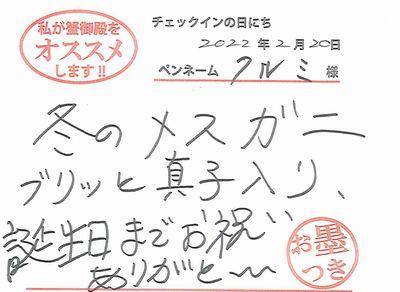 私が蟹御殿を
オススメ
します!!
チェックインの日にち
2022年2月20日
ペンネーム クルミ 様
冬のメスガニ
ブリッと真子入り、
誕生日までお祝い
ありがと〜〜
お墨
つき